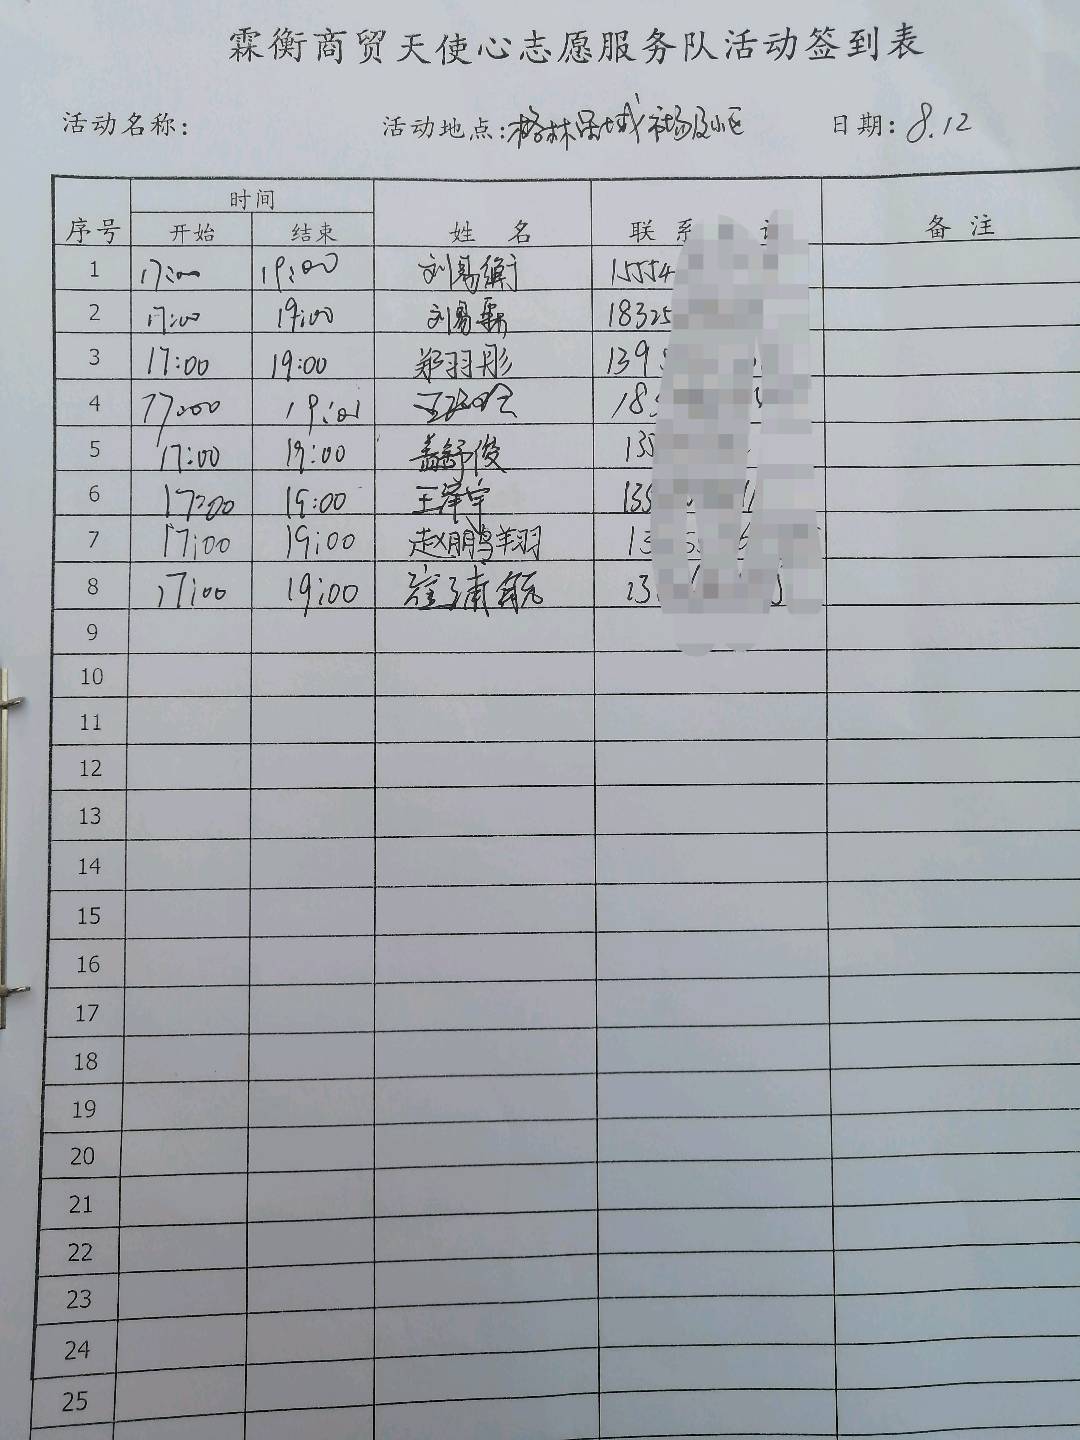 霖衡商贸天使心志愿服务队活动签到表
活动名称: 活动地点:格林 市场及小区 日期: 8.12
时间
序号 开始 结束 姓 名 联 系 备 注
1 17:00 19:00 刘易衡 15554
2 17:00 19:00 刘易霖 18325
3 17:00 19:00 郑羽彤 139
4 17:00 19:00 王 18
5 17:00 19:00 舒俊 135
6 17:00 19:00 王泽宇 135
7 17:00 19:00 赵鹏翔 13
8 17:00 19:00 13
9
10
11
12
13
14
15
16
17
18
19
20
21
22
23
24
25